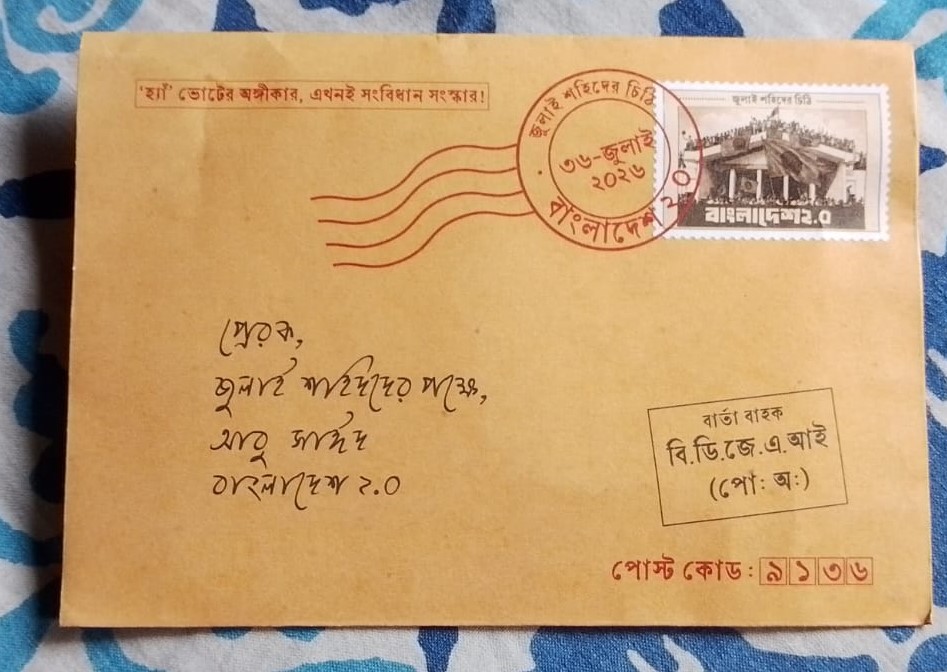 'হ্যাঁ' ভোটের অঙ্গীকার, এখনই সংবিধান সংস্কার!
জুলাই শহিদের চিঠি
৩৬-জুলাই
২০২৬
বাংলাদেশ ২.০
জুলাই শহিদের চিঠি
বাংলাদেশ২.০
প্রেরক,
জুলাই শহিদদের পক্ষে,
আবু সাঈদ
বাংলাদেশ ২.০
বার্তা বাহক
বি.ডি.জে.এ.আই
(পো: অ:)
পোস্ট কোড: ৯১৩৬